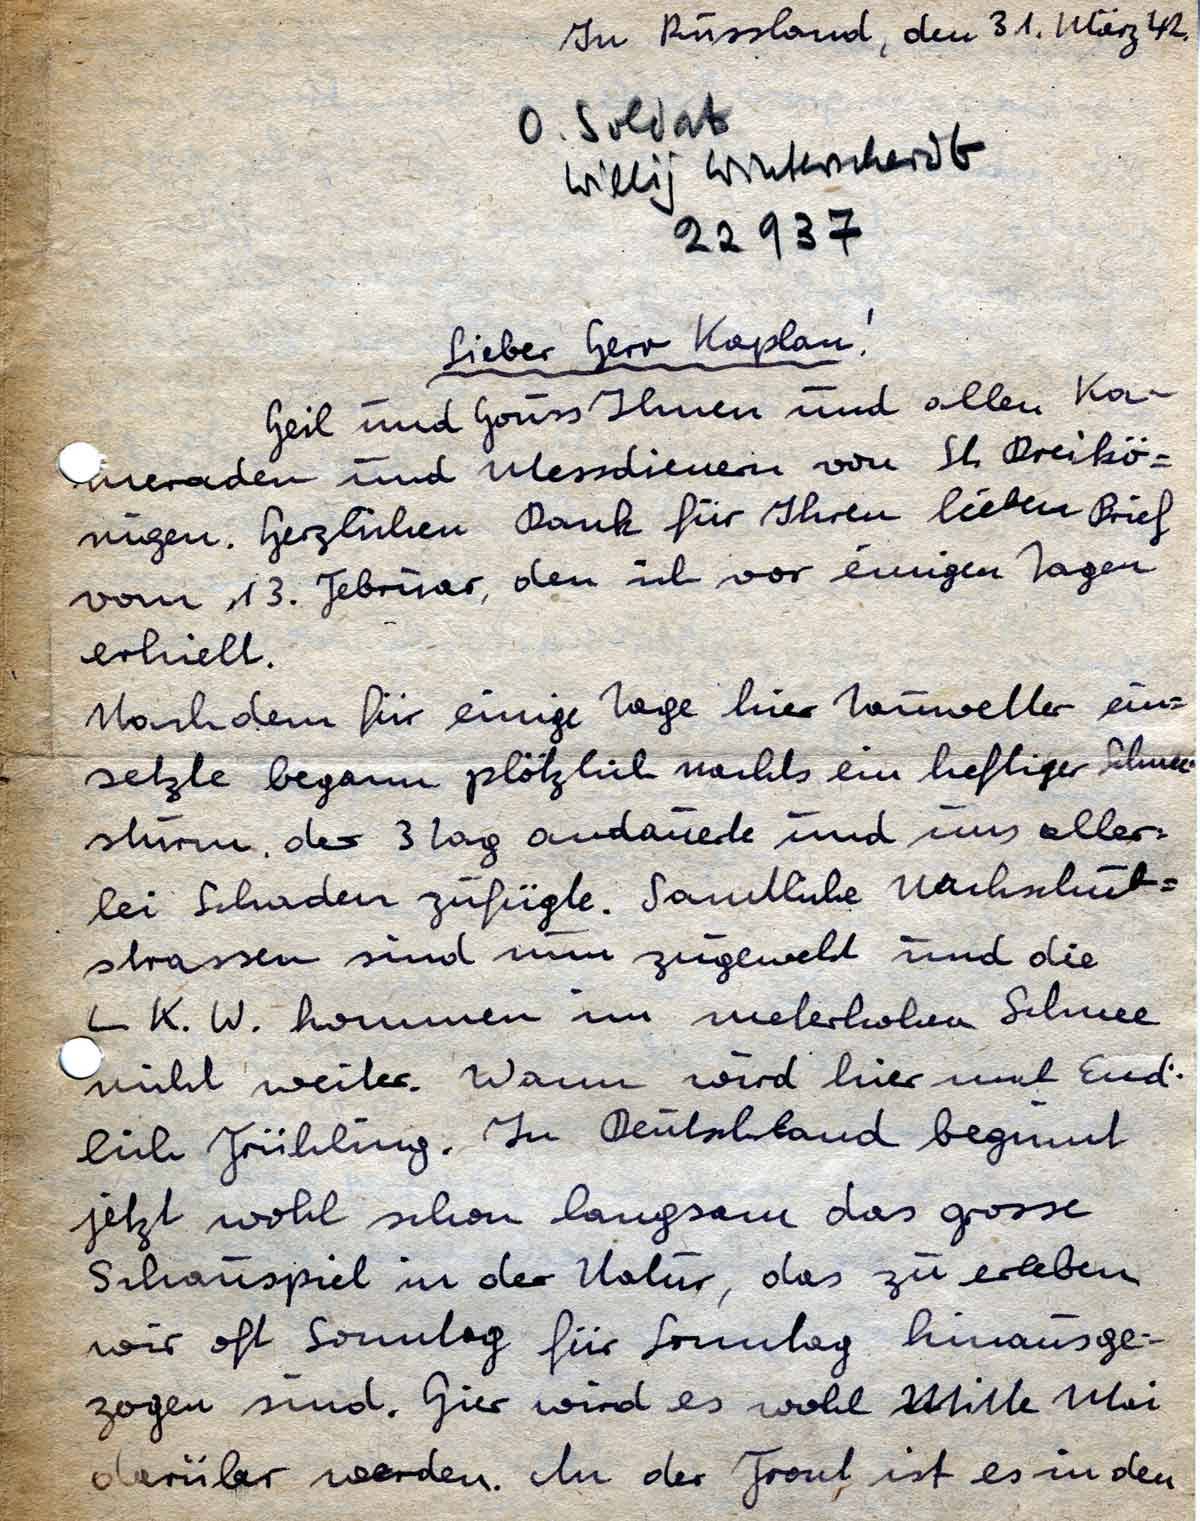 In Russland, den 31. März 42.
O. Soldat
Willij Winterscheidt
22937
Lieber Herr Kaplan!
Heil und Gruss Ihnen und allen Ka-
meraden und Messdienern von St. Dreikö=
nigen. Herzlichen Dank für Ihren lieben Brief
vom 13. Februar, den ich vor einigen Tagen
erhielt.
Nachdem für einige Tage hier Tauwetter ein=
setzte begann plötzlich nachts ein heftiger Schnee-
sturm, der 3 Tag andauerte und uns aller=
lei Schaden zufügte. Samtliche Nachschub=
strassen sind nun zugeweht und die
L K. W. kommen im meterhohen Schnee
nicht weiter. Wann wird hier mal End-
lich Frühling. In Deutschland beginnt
jetzt wohl schon langsam das grosse
Schauspiel in der Natur, das zu erleben
wir oft Sonntag für Sonntag hinausge-
zogen sind. Hier wird es wohl Mitte Mai
darüber werden. An der Front ist es in den